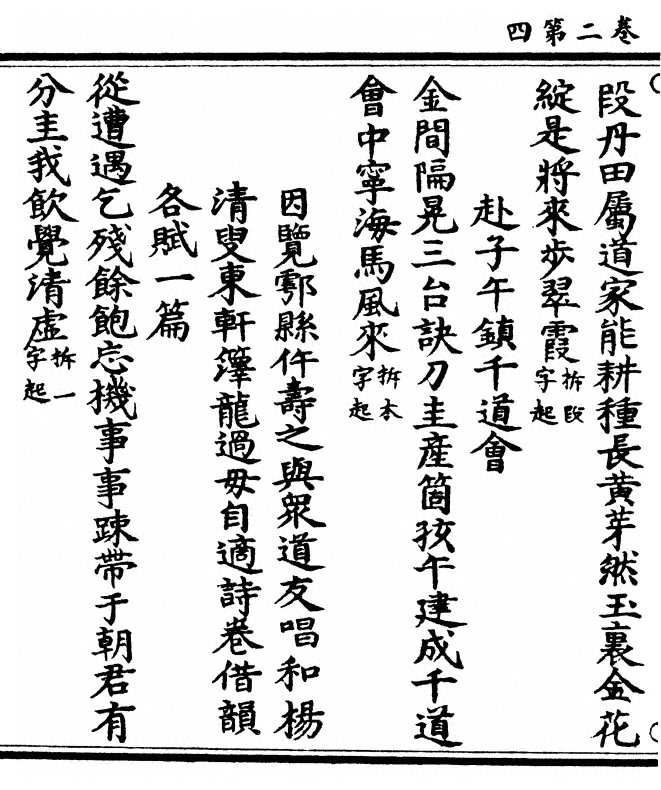 卷二第四
段丹田屬道家能耕種長黃芽然玉裏金花
綻是將來步翠霞拆段字起
赴子午鎮千道會
金間隔晃三台訣刀圭產箇孩午建成千道
會中寧海馬風來拆木字起
因覽鄠縣仵壽之與衆道友唱和楊
清叟東軒澤龍過毋自適詩卷借韻
各賦一篇
從遭遇乞殘餘飽忘機事事踈帶于朝君有
分圭我飲覺清虛拆一字起